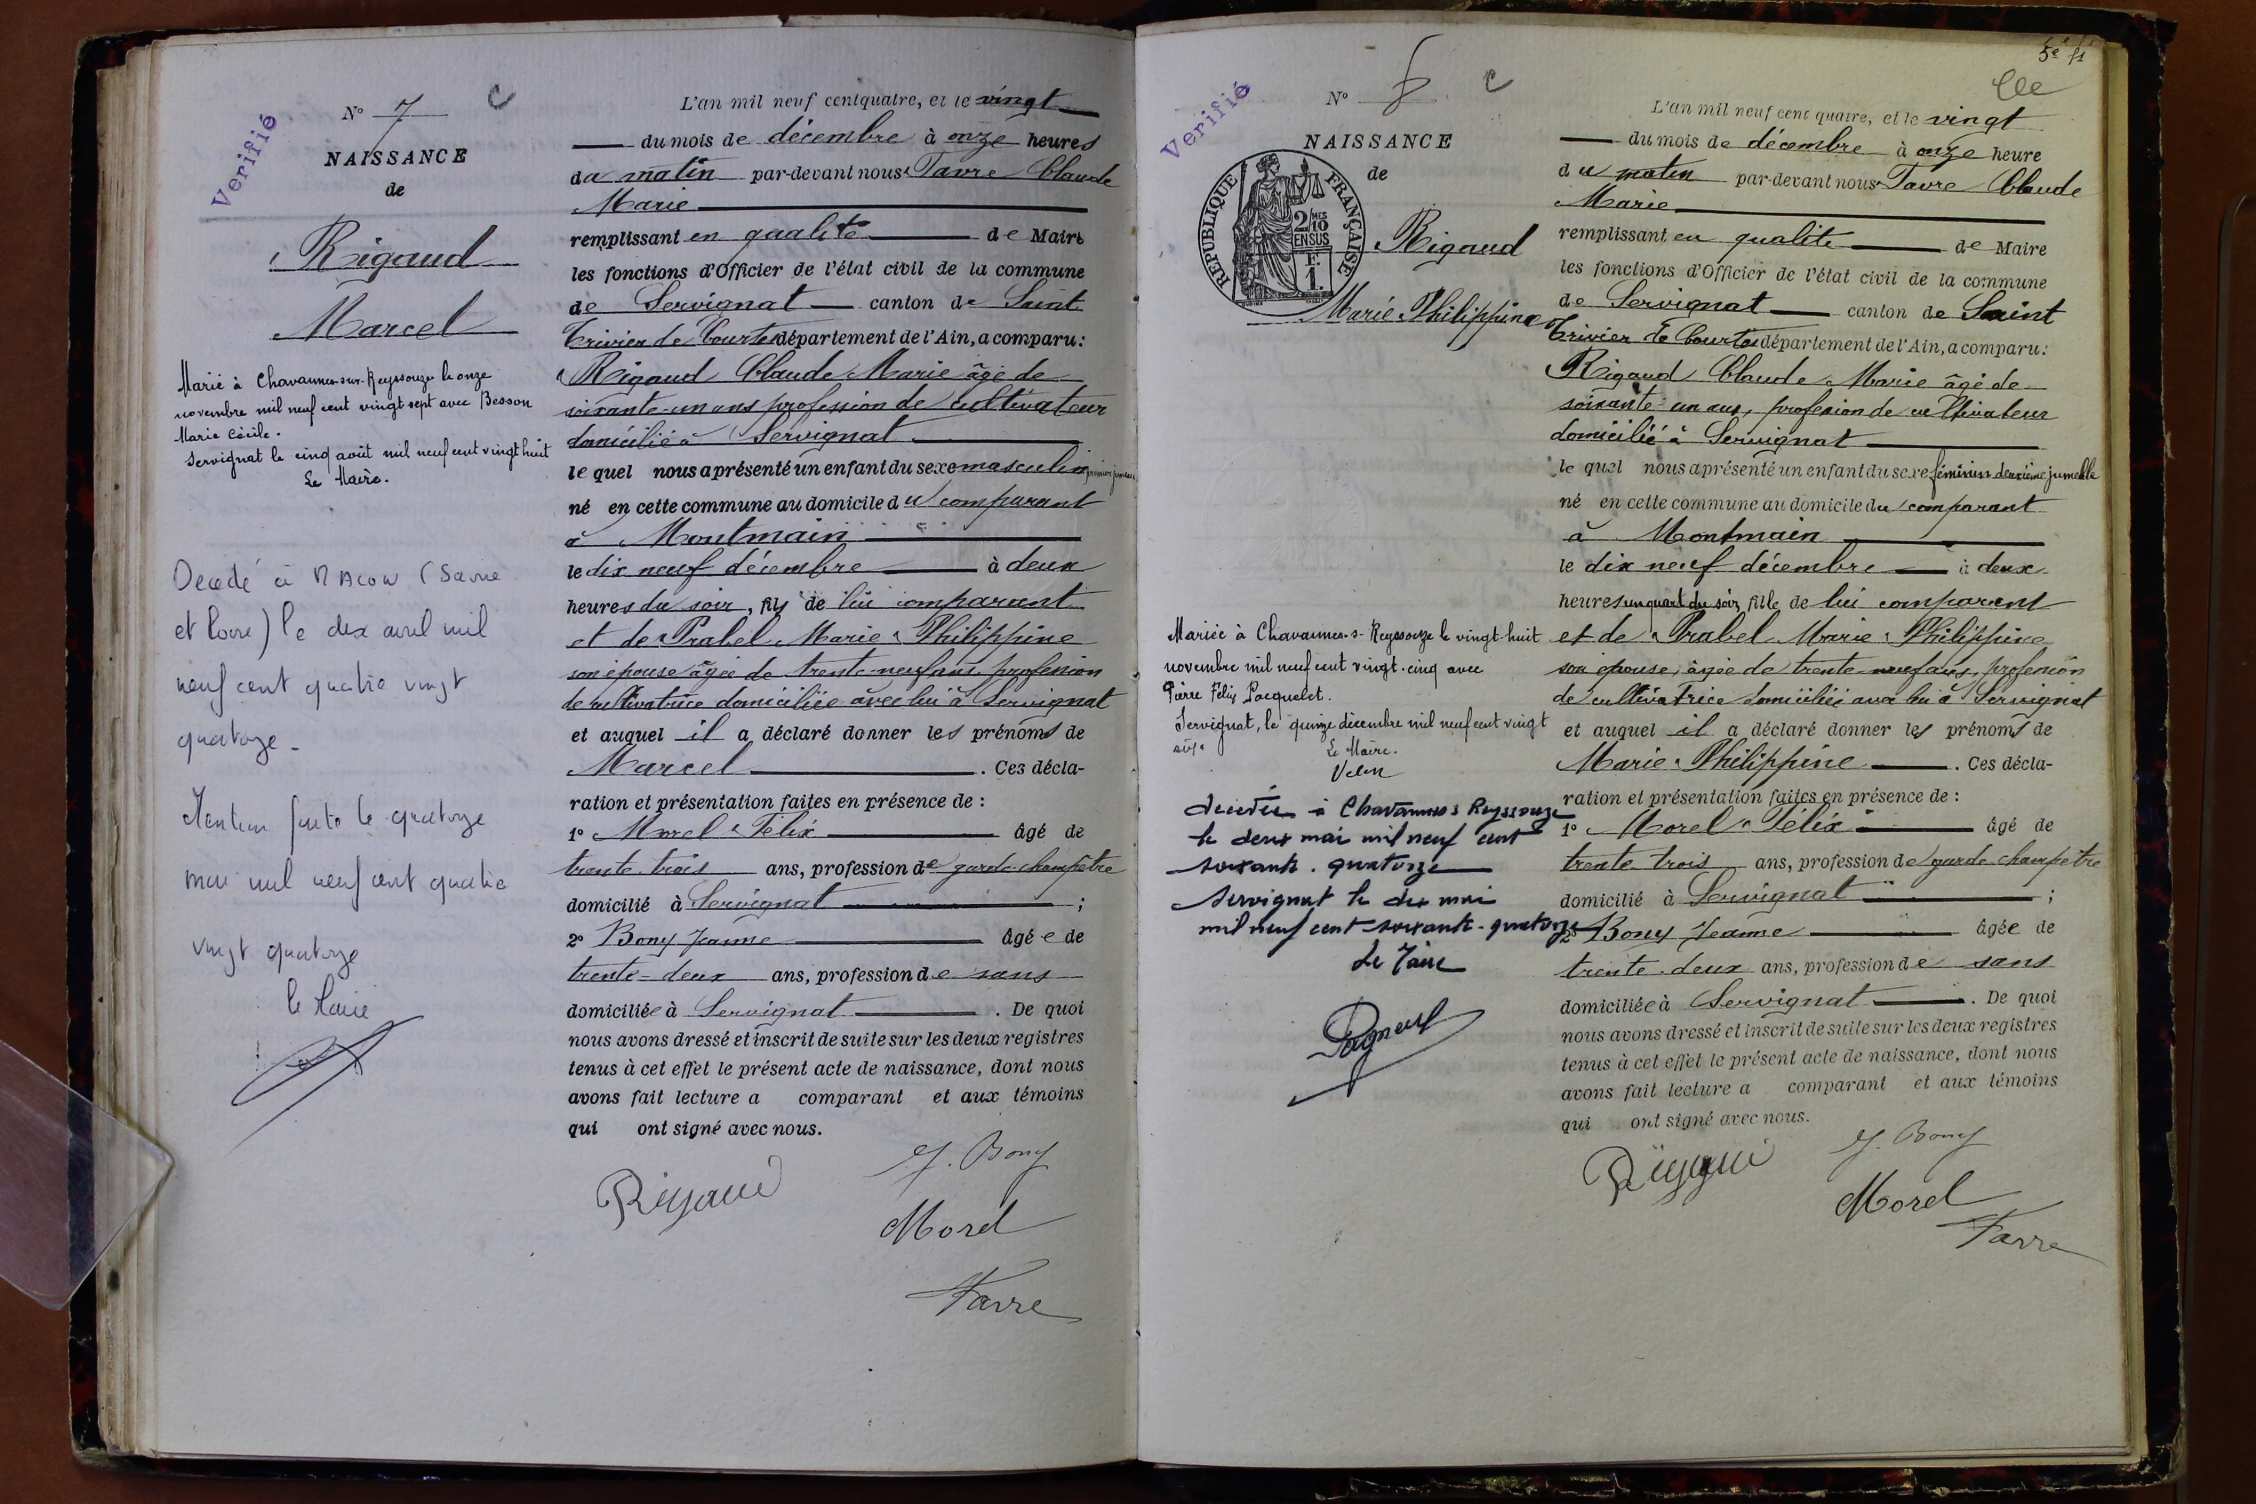 Verifié
N° 7
C
NAISSANCE
de
Rigaud
Marcel
Marié à Chavannes-sur-Reyssouze le onze
novembre mil neuf cent vingt sept avec Besson
Marie Cécile.
Servignat le cinq août mil neuf cent vingt huit
Le Maire.
Decedé à MACON (Saone
et Loire) le dix avril mil
neuf cent quatre vingt
quatorze -
Mention faite le quatorze
mai mil neuf cent quatre
vingt quatorze
le Maire
L'an mil neuf cent quatre, et le vingt
du mois de décembre à onze heures
du matin par-devant nous Favre Claude
Marie
remplissant en qualité de Maire
les fonctions d'Officier de l'état civil de la commune
de Servignat canton de Saint
Trivier de Courtes département de l'Ain, a comparu:
Rigaud Claude Marie âgé de
soixante-un ans profession de cultivateur
domicilié à Servignat
le quel nous a présenté un enfant du sexe masculin premier jumeau
né en cette commune au domicile du comparant
à Montmain
le dix neuf décembre à deux
heures du soir, fils de lui comparant
et de Prabel Marie Philippine
son épouse âgée de trente-neuf ans profession
de cultivatrice domiciliée avec lui à Servignat
et auquel il a déclaré donner les prénoms de
Marcel . Ces décla-
ration et présentation faites en présence de :
1° Morel Félix âgé de
trente trois ans, profession de garde-champêtre
domicilié à Servignat ;
2° Bony Jeanne âgée de
trente-deux ans, profession de sans
domiciliée à Servignat . De quoi
nous avons dressé et inscrit de suite sur les deux registres
tenus à cet effet le présent acte de naissance, dont nous
avons fait lecture a comparant et aux témoins
qui ont signé avec nous.
J. Bony
Rigaud
Morel
Favre
5e f1
Verifié
N° 8
C
NAISSANCE
de
REPUBLIQUE FRANÇAISE
2/10 MES
EN SUS
F.
1.
Rigaud
Marie Philippine
Mariée à Chavannes-s-Reyssouze le vingt-huit
novembre mil neuf cent vingt-cinq avec
Pierre Félix Pacquelet.
Servignat, le quinze décembre mil neuf cent vingt
six.
Le Maire.
décédée à Chavannes s Reyssouze
le deux mai mil neuf cent
soixante-quatorze
Servignat le dix mai
mil neuf cent soixante-quatorze
Le Maire
L'an mil neuf cent quatre, et le vingt
du mois de décembre à onze heure
du matin par-devant nous Favre Claude
Marie
remplissant en qualité de Maire
les fonctions d'Officier de l'état civil de la commune
de Servignat canton de Saint
Trivier de Courtes département de l'Ain, a comparu:
Rigaud Claude Marie âgé de
soixante un ans, profession de cultivateur
domicilié à Servignat
le quel nous a présenté un enfant du sexe féminin deuxième jumelle
né en cette commune au domicile du comparant
à Montmain
le dix neuf décembre à deux
heures un quart du soir, fille de lui comparant
et de Prabel Marie Philippine
son épouse, âgée de trente neuf ans, profession
de cultivatrice domiciliée avec lui à Servignat
et auquel il a déclaré donner les prénoms de
Marie Philippine . Ces décla-
ration et présentation faites en présence de :
1° Morel Félix âgé de
trente-trois ans, profession de garde-champêtre
domicilié à Servignat ;
2° Bony Jeanne âgée de
trente-deux ans, profession de sans
domiciliée à Servignat . De quoi
nous avons dressé et inscrit de suite sur les deux registres
tenus à cet effet le présent acte de naissance, dont nous
avons fait lecture a comparant et aux témoins
qui ont signé avec nous.
J. Bony
Rigaud
Morel
Favre